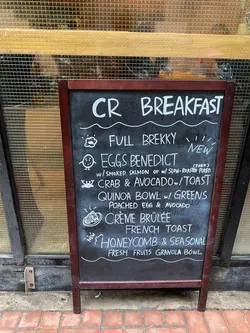 CR BREAKFAST
FULL BREKKY
NEW
EGGS BENEDICT
W/ SMOKED SALMON OR W/ SLOW-ROASTED PORK
CRAB & AVOCADO W/ TOAST
QUINOA BOWL W/ GREENS
POACHED EGG & AVOCADO
CRÈME BRÛLÉE
FRENCH TOAST
HONEYCOMB & SEASONAL
FRESH FRUITS GRANOLA BOWL